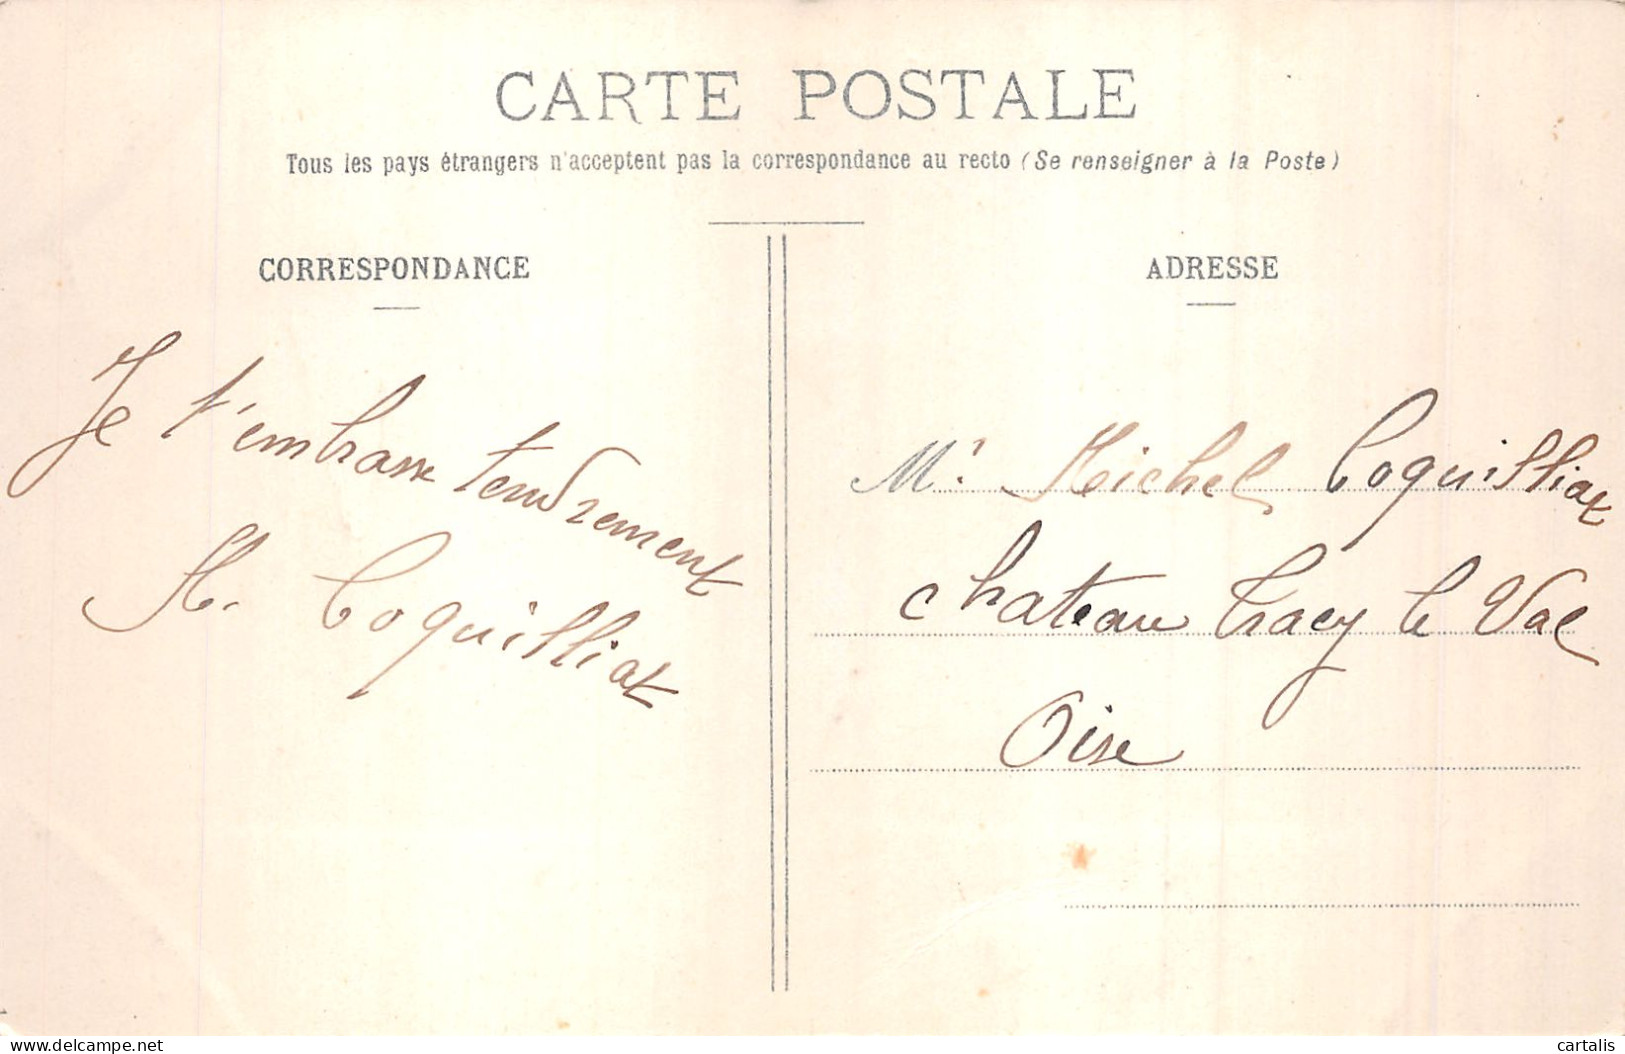 CARTE POSTALE
Tous les pays étrangers n'acceptent pas la correspondance au recto (Se renseigner à la Poste)
CORRESPONDANCE
Je t'embrasse tendrement
M. Coquilliat
ADRESSE
Mr Michel Coquilliat
chateau Tracy le Val
Oise
cartalis